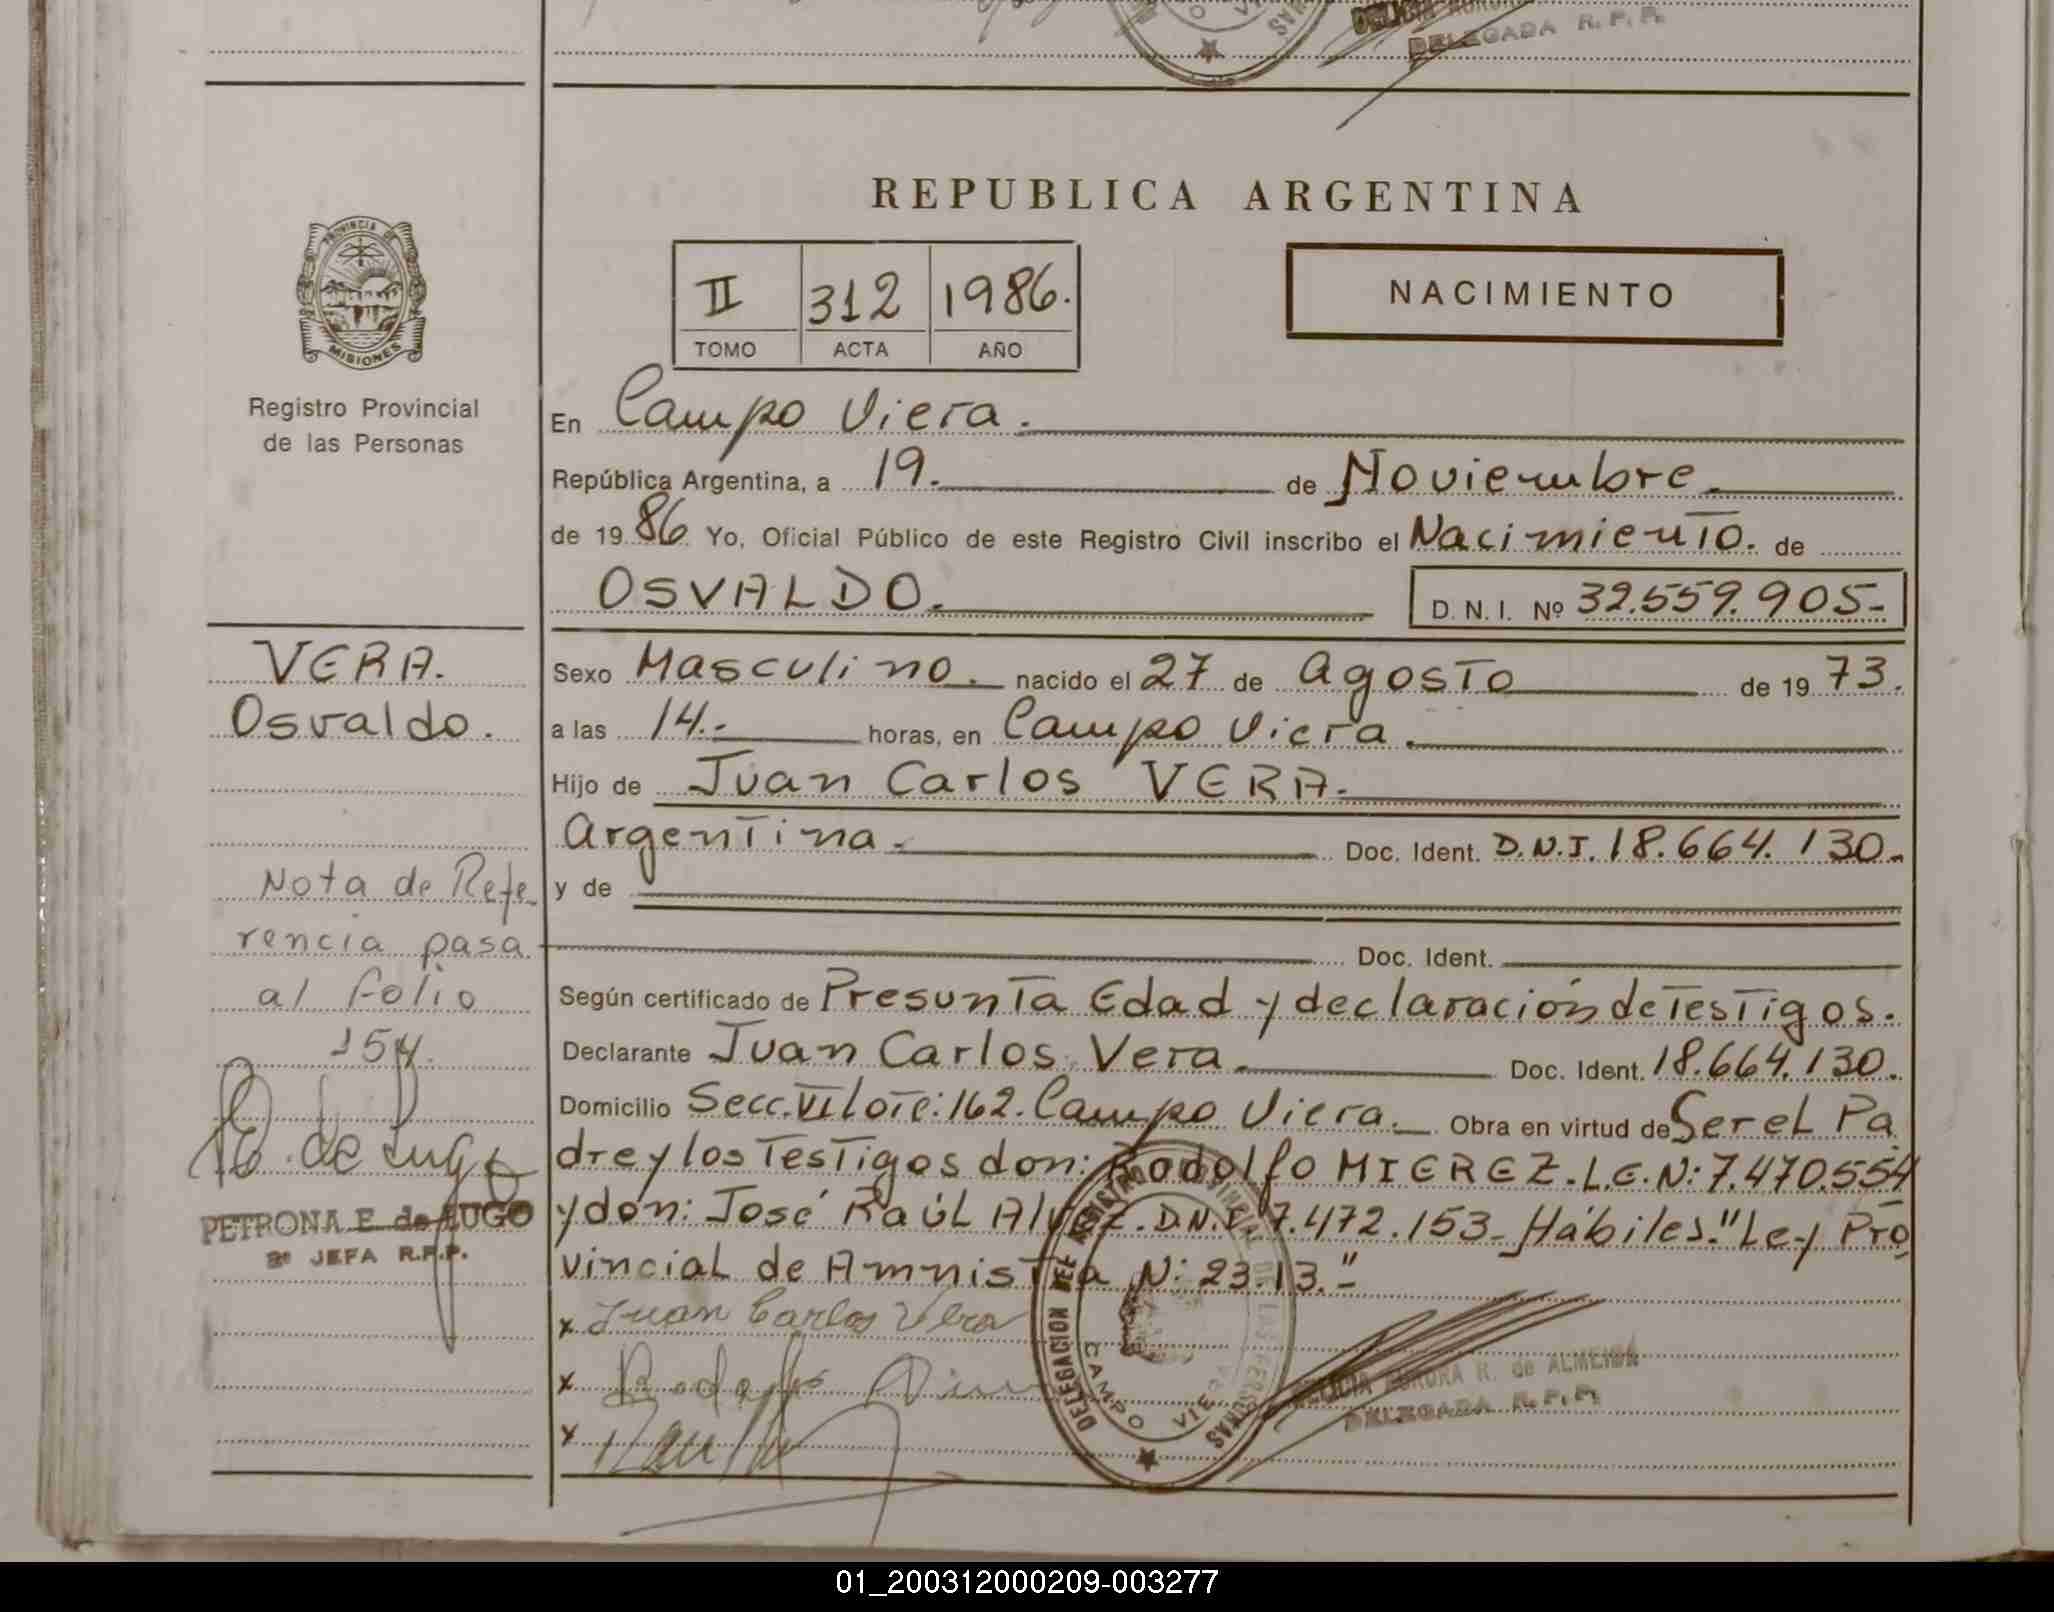 DELEGADA R. P. P.
REPUBLICA ARGENTINA
PROVINCIA DE
MISIONES
Registro Provincial
de las Personas
II 312 1986.
TOMO ACTA AÑO
NACIMIENTO
En Campo Viera.
República Argentina, a 19. de Noviembre
de 19 86 Yo, Oficial Público de este Registro Civil inscribo el Nacimiento. de
OSVALDO. D. N. I. Nº 32.559.905-
VERA.
Osvaldo.
Sexo Masculino. nacido el 27 de Agosto de 19 73.
a las 14.- horas, en Campo Viera.
Hijo de Juan Carlos VERA.
Argentina. Doc. Ident. D.N.I. 18.664.130.
y de
Doc. Ident.
Nota de Refe
rencia pasa
al folio
154.
Según certificado de Presunta Edad y declaración de Testigos.
Declarante Juan Carlos Vera. Doc. Ident. 18.664.130.
Domicilio Secc. VI lote: 162. Campo Viera. Obra en virtud de Ser el Pa
dre y los Testigos don: Rodolfo MIEREZ. L.E. N: 7.470.554
y don: José Raúl D.N.I. 7.472.153- Hábiles. "Ley Pro
vincial de Amnistia N: 23.13."-
P. E. de Lugo
PETRONA E. de LUGO
2ª JEFA R.P.P.
x Juan Carlos Vera
x Rodolfo
x Raul
DELEGACION DEL REGISTRO PROVINCIAL DE LAS PERSONAS
CAMPO VIERA
DELICIA AURORA R. de ALMEIDA
DELEGADA R. P. P.
01_200312000209-003277